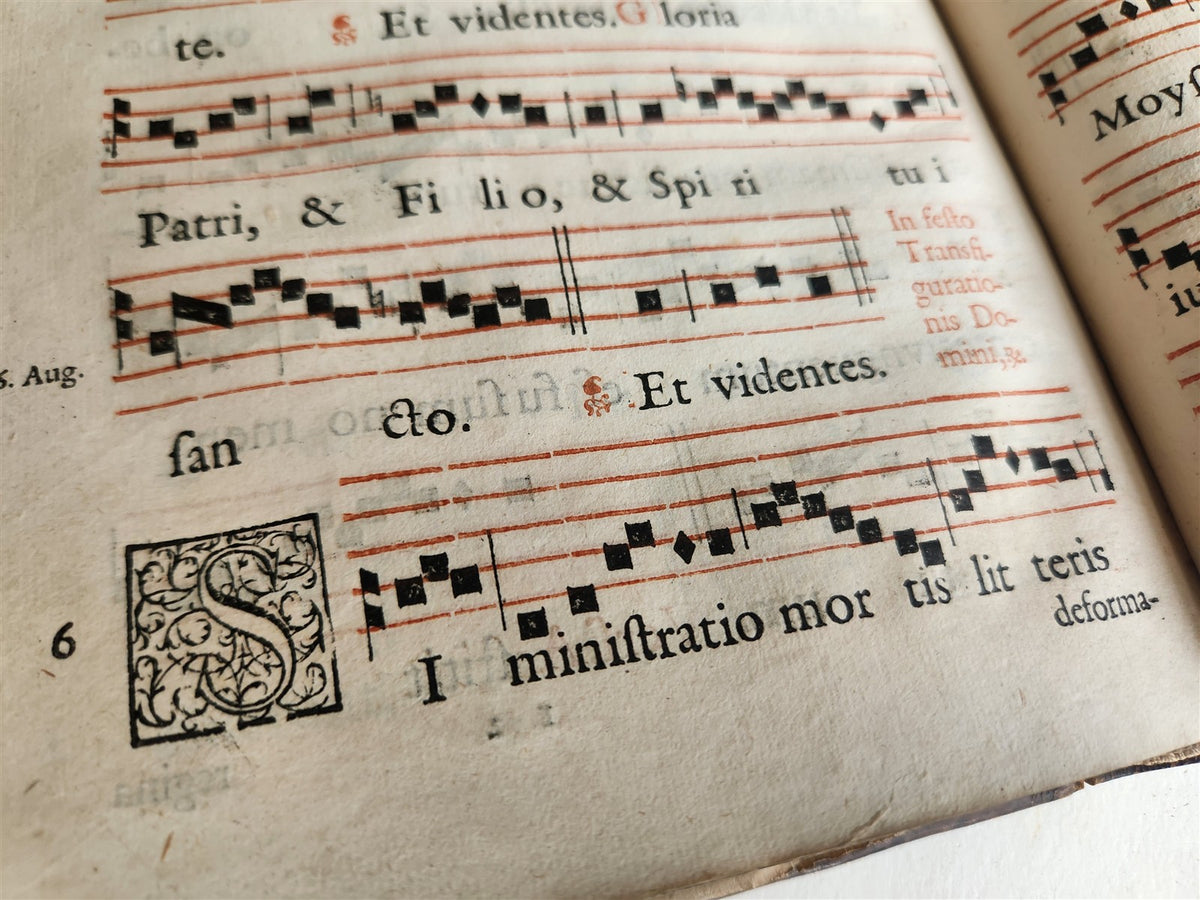 te. Et videntes. Gloria
Patri, & Fi li o, & Spi ri tu i
In festo
Transfi-
guratio-
nis Do-
mini, &
6. Aug.
ſan cto. Et videntes.
6 S I miniſtratio mor tis lit teris
deforma-
Moyſ
iu